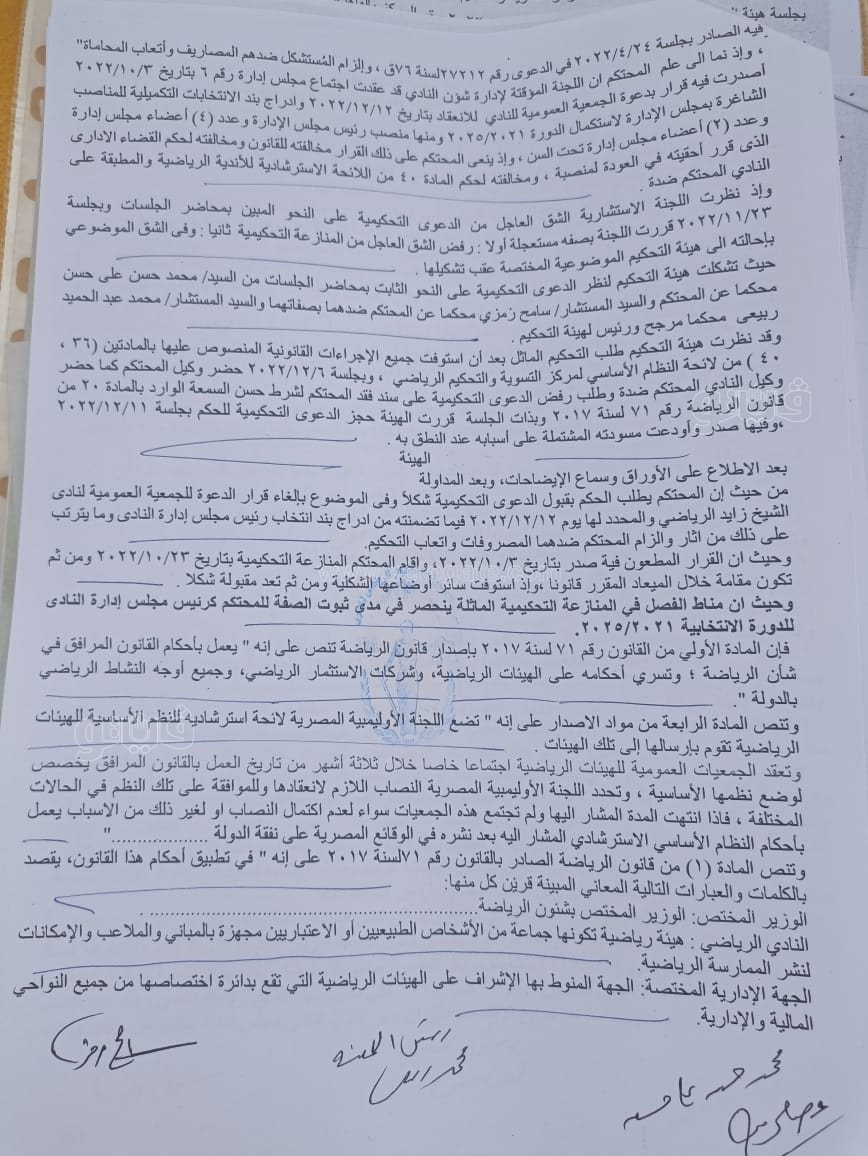 بجلسة هيئة
فيه الصادر بجلسة ٢٠٢٢/٤/٢٤ في الدعوى رقم ٢٧٢١٢ لسنة ٧٦ق ، وإلزام المُستشكل ضدهم المصاريف وأتعاب المحاماة"
، وإذ نما الى علم المحتكم ان اللجنة المؤقتة لإدارة شؤن النادي قد عقدت اجتماع مجلس إدارة رقم ٦ بتاريخ ٢٠٢٢/١٠/٣
أصدرت فيه قرار بدعوة الجمعية العمومية للنادي للانعقاد بتاريخ ٢٠٢٢/١٢/١٢ وادراج بند الانتخابات التكميلية للمناصب
الشاغرة بمجلس الإدارة لاستكمال الدورة ٢٠٢٥/٢٠٢١ ومنها منصب رئيس مجلس الإدارة وعدد (٤) أعضاء مجلس إدارة
وعدد (٢) أعضاء مجلس إدارة تحت السن ، وإذ ينعى المحتكم على ذلك القرار مخالفته للقانون ومخالفته لحكم القضاء الادارى
الذى قرر أحقيته في العودة لمنصبة ، ومخالفته لحكم المادة ٤٠ من اللائحة الاسترشادية للأندية الرياضية والمطبقة على
النادي المحتكم ضدة .
وإذ نظرت اللجنة الاستشارية الشق العاجل من الدعوى التحكيمية على النحو المبين بمحاضر الجلسات وبجلسة
٢٠٢٢/١١/٢٣ قررت اللجنة بصفه مستعجلة أولا : رفض الشق العاجل من المنازعة التحكيمية ثانيا : وفى الشق الموضوعي
بإحالته الى هيئة التحكيم الموضوعية المختصة عقب تشكيلها .
حيث تشكلت هيئة التحكيم لنظر الدعوى التحكيمية على النحو الثابت بمحاضر الجلسات من السيد/ محمد حسن على حسن
محكما عن المحتكم والسيد المستشار/ سامح رمزي محكما عن المحتكم ضدهما بصفاتهما والسيد المستشار/ محمد عبد الحميد
ربيعى محكما مرجح ورئيس لهيئة التحكيم .
وقد نظرت هيئة التحكيم طلب التحكيم الماثل بعد أن استوفت جميع الإجراءات القانونية المنصوص عليها بالمادتين (٣٦ ،
٤٠ ) من لائحة النظام الأساسي لمركز التسوية والتحكيم الرياضي ، وبجلسة ٢٠٢٢/١٢/٦ حضر وكيل المحتكم كما حضر
وكيل النادي المحتكم ضدة وطلب رفض الدعوى التحكيمية على سند فقد المحتكم لشرط حسن السمعة الوارد بالمادة ٢٠ من
قانون الرياضة رقم ٧١ لسنة ٢٠١٧ وبذات الجلسة قررت الهيئة حجز الدعوى التحكيمية للحكم بجلسة ٢٠٢٢/١٢/١١
،وفيها صدر وأودعت مسودته المشتملة على أسبابه عند النطق به .
الهيئة
بعد الاطلاع على الأوراق وسماع الإيضاحات، وبعد المداولة
من حيث إن المحتكم يطلب الحكم بقبول الدعوى التحكيمية شكلاً وفى الموضوع بإلغاء قرار الدعوة للجمعية العمومية لنادى
الشيخ زايد الرياضي والمحدد لها يوم ٢٠٢٢/١٢/١٢ فيما تضمنته من ادراج بند انتخاب رئيس مجلس إدارة النادى وما يترتب
على ذلك من اثار والزام المحتكم ضدهما المصروفات واتعاب التحكيم.
وحيث ان القرار المطعون فية صدر بتاريخ ٢٠٢٢/١٠/٣، واقام المحتكم المنازعة التحكيمية بتاريخ ٢٠٢٢/١٠/٢٣ ومن ثم
تكون مقامة خلال الميعاد المقرر قانونا ،وإذ استوفت سائر أوضاعها الشكلية ومن ثم تعد مقبولة شكلا .
وحيث ان مناط الفصل في المنازعة التحكيمية الماثلة ينحصر في مدى ثبوت الصفة للمحتكم كرئيس مجلس إدارة النادى
للدورة الانتخابية ٢٠٢٥/٢٠٢١.
فإن المادة الأولي من القانون رقم ٧١ لسنة ٢٠١٧ بإصدار قانون الرياضة تنص على إنه " يعمل بأحكام القانون المرافق في
شأن الرياضة ؛ وتسري أحكامه على الهيئات الرياضية، وشركات الاستثمار الرياضي، وجميع أوجه النشاط الرياضي
بالدولة ".
وتنص المادة الرابعة من مواد الاصدار على إنه " تضع اللجنة الأوليمبية المصرية لائحة استرشاديه للنظم الأساسية للهيئات
الرياضية تقوم بإرسالها إلى تلك الهيئات .
وتعقد الجمعيات العمومية للهيئات الرياضية اجتماعا خاصا خلال ثلاثة أشهر من تاريخ العمل بالقانون المرافق يخصص
لوضع نظمها الأساسية ، وتحدد اللجنة الأوليمبية المصرية النصاب اللازم لانعقادها وللموافقة على تلك النظم في الحالات
المختلفة ، فاذا انتهت المدة المشار اليها ولم تجتمع هذه الجمعيات سواء لعدم اكتمال النصاب او لغير ذلك من الاسباب يعمل
بأحكام النظام الأساسي الاسترشادي المشار اليه بعد نشره في الوقائع المصرية على نفقة الدولة .................."
وتنص المادة (١) من قانون الرياضة الصادر بالقانون رقم ٧١لسنة ٢٠١٧ على إنه " في تطبيق أحكام هذا القانون، يقصد
بالكلمات والعبارات التالية المعاني المبينة قرين كل منها:
الوزير المختص: الوزير المختص بشئون الرياضة............................................................ .
النادي الرياضي : هيئة رياضية تكونها جماعة من الأشخاص الطبيعيين أو الاعتباريين مجهزة بالمباني والملاعب والإمكانات
لنشر الممارسة الرياضية.
الجهة الإدارية المختصة: الجهة المنوط بها الإشراف على الهيئات الرياضية التي تقع بدائرة اختصاصها من جميع النواحي
المالية والإدارية.
رئيس الهيئة
محمد حسن علي حسن